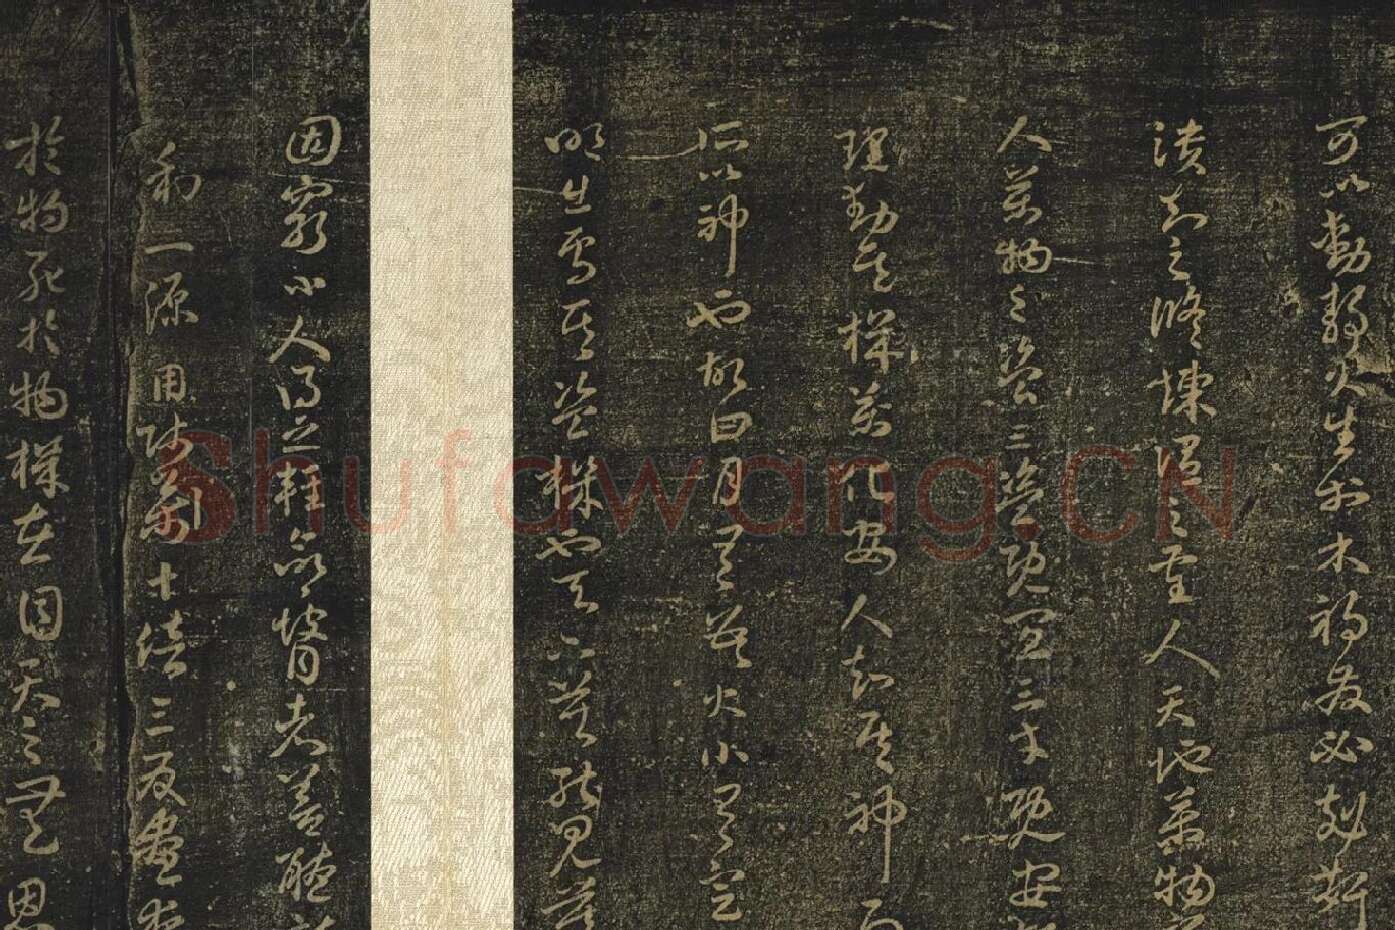 可以動靜火生於木禍發必剋姧
潰知之脩煉謂之聖人天地萬物
人萬物之盜三盜既宜三才既安
理動其機萬化安人知其神而
所以神也故日月有數大小有定
明出焉其盜機也天下莫能見莫
因窮小人得之輕命瞽者善聽
利一源用師十倍三反晝夜
於物死於物機在目天之無恩
Shufawang.CN